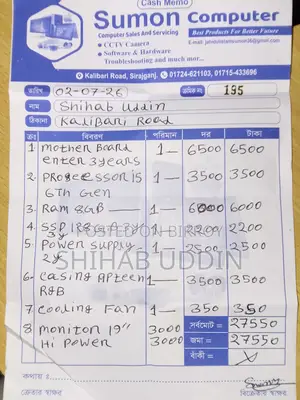 Cash Memo
Sumon Computer
Computer Sales And Servicing
Best Products For Better Future
• CCTV Camera
• Software & Hardware
Troubleshooting and much mor...
Kalibari Road, Sirajganj. 01724-621103, 01715-433696
তারিখ 02-07-26 ক্রমিক নং 195
নাম Shihab Uddin
ঠিকানা Kalibari Road
ক্রঃ বিবরণ পরিমান দর টাকা
1 mother Board 1— 6500 6500
enter 3 years
2 Processor i5 1— 3500 3500
6th Gen
3 Ram 8GB — 1— 6000 6000
4 SSD 128G 3y 1— 2200 2200
5 Power Supply - 1— 2500 2500
2y
6 Casing 1— 3500 3500
RGB
7 Cooling Fan 1— 350 350
8 monitor 19" 3000 সর্বমোট= 27550
Hi Power 3000 জমা= 27550
বাকী= X
কথায় :
ক্রেতার স্বাক্ষর বিক্রেতার স্বাক্ষর
POSTED ON BIKROY
SHIHAB UDDIN